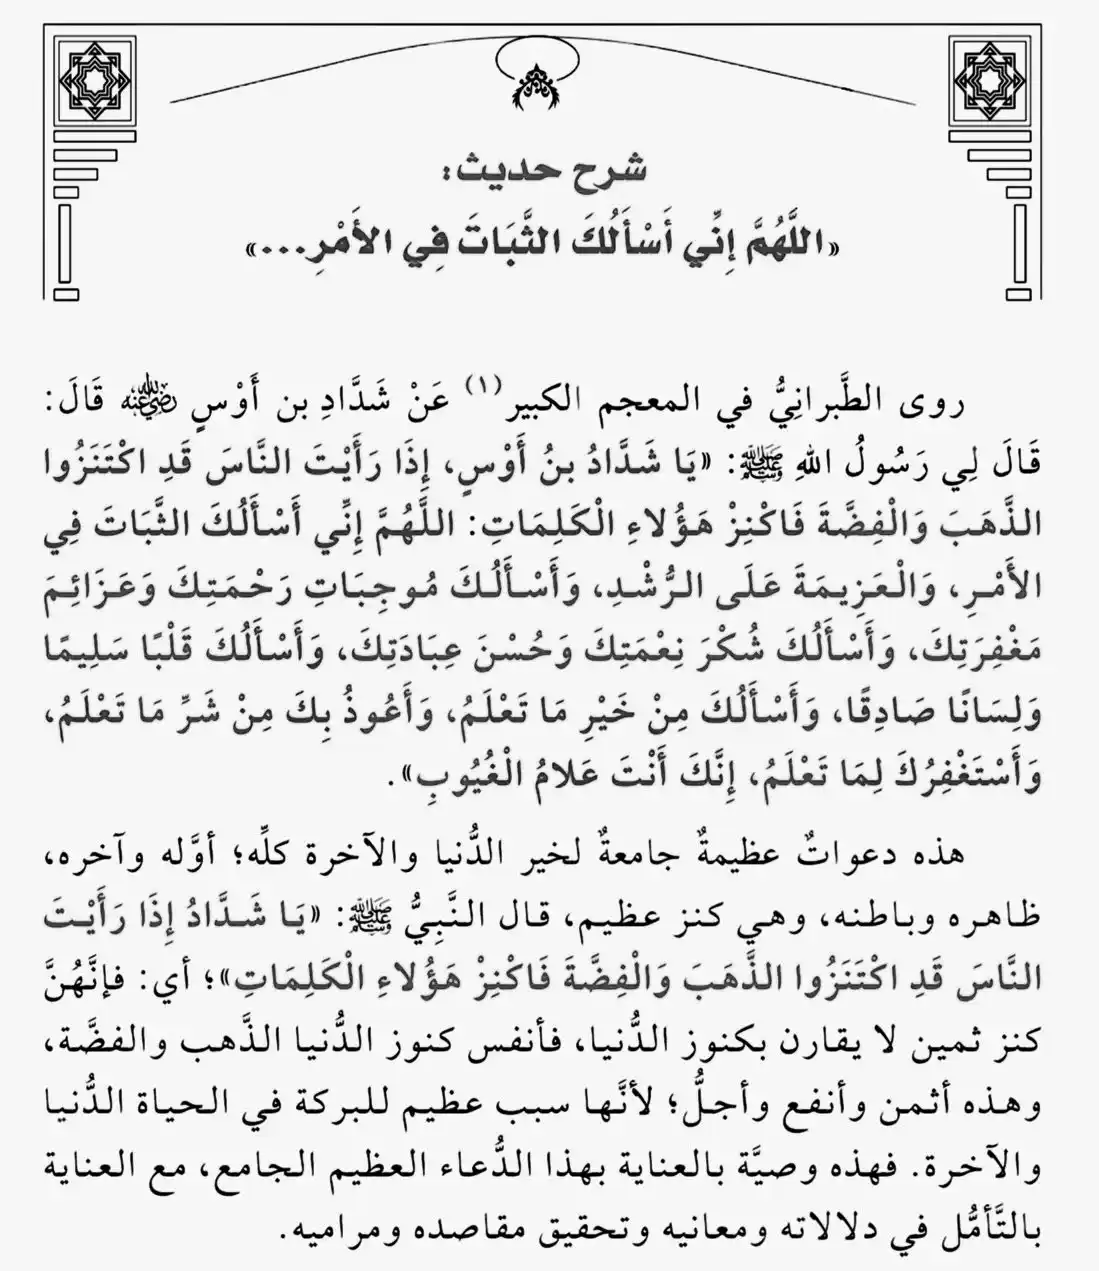 شرح حديث:
«اللَّهُمَّ إِنِّي أَسْأَلُكَ الثَّبَاتَ فِي الأَمْرِ...»
روى الطَّبرانِيُّ في المعجم الكبير(١) عَنْ شَدَّادِ بن أَوْسٍ رضي الله عنه قَالَ:
قَالَ لِي رَسُولُ اللهِ ﷺ: «يَا شَدَّادُ بنُ أَوْسٍ، إِذَا رَأَيْتَ النَّاسَ قَدِ اكْتَنَزُوا
الذَّهَبَ وَالْفِضَّةَ فَاكْنِزْ هَؤُلاءِ الْكَلِمَاتِ: اللَّهُمَّ إِنِّي أَسْأَلُكَ الثَّبَاتَ فِي
الأَمْرِ، وَالْعَزِيمَةَ عَلَى الرُّشْدِ، وَأَسْأَلُكَ مُوجِبَاتِ رَحْمَتِكَ وَعَزَائِمَ
مَغْفِرَتِكَ، وَأَسْأَلُكَ شُكْرَ نِعْمَتِكَ وَحُسْنَ عِبَادَتِكَ، وَأَسْأَلُكَ قَلْبًا سَلِيمًا
وَلِسَانًا صَادِقًا، وَأَسْأَلُكَ مِنْ خَيْرِ مَا تَعْلَمُ، وَأَعُوذُ بِكَ مِنْ شَرِّ مَا تَعْلَمُ،
وَأَسْتَغْفِرُكَ لِمَا تَعْلَمُ، إِنَّكَ أَنْتَ عَلامُ الْغُيُوبِ».
هذه دعواتٌ عظيمةٌ جامعةٌ لخير الدُّنيا والآخرة كلِّه؛ أوَّله وآخره،
ظاهره وباطنه، وهي كنز عظيم، قال النَّبِيُّ ﷺ: «يَا شَدَّادُ إِذَا رَأَيْتَ
النَّاسَ قَدِ اكْتَنَزُوا الذَّهَبَ وَالْفِضَّةَ فَاكْنِزْ هَؤُلاءِ الْكَلِمَاتِ»؛ أي: فإنَّهُنَّ
كنز ثمين لا يقارن بكنوز الدُّنيا، فأنفس كنوز الدُّنيا الذَّهب والفضَّة،
وهذه أثمن وأنفع وأجلُّ؛ لأنَّها سبب عظيم للبركة في الحياة الدُّنيا
والآخرة. فهذه وصيَّة بالعناية بهذا الدُّعاء العظيم الجامع، مع العناية
بالتَّأمُّل في دلالاته ومعانيه وتحقيق مقاصده ومراميه.